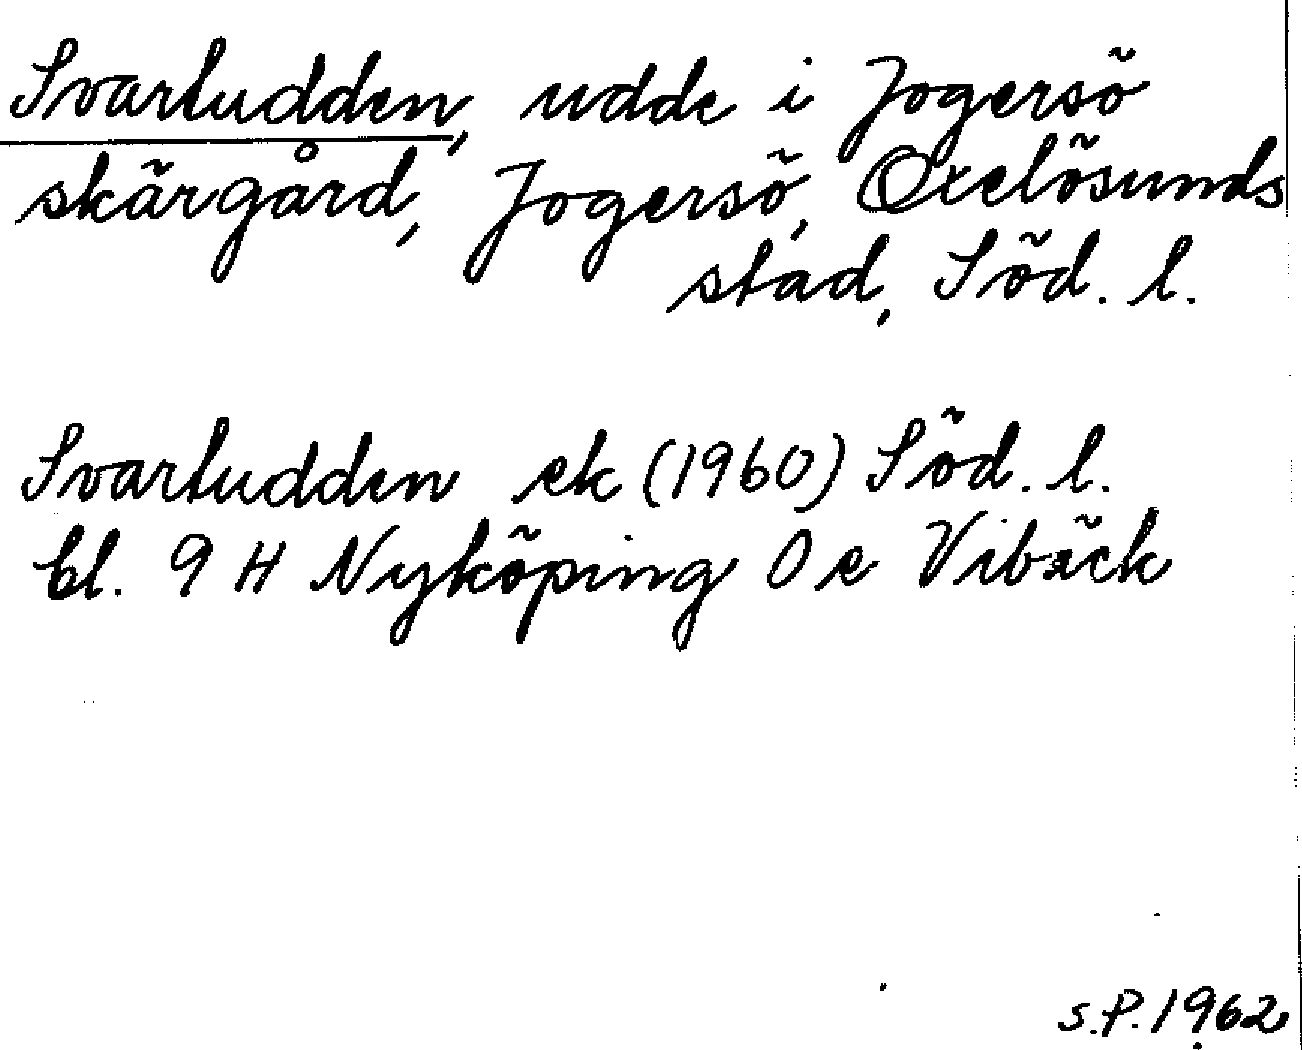 Svartudden, udde i Jogersö
skärgård, Jogersö, Oxelösunds
stad, Söd. l.
Svartudden ek (1960) Söd. l.
bl. 9 H Nyköping O e Vibäck
S.P. 1962